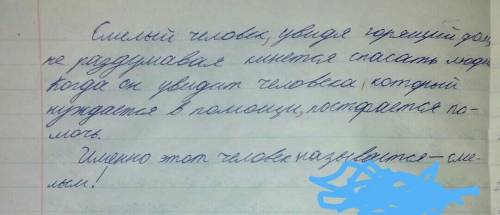 Смелый человек, увидя горящий дом,
не раздумывая кинется спасать людей.
Когда он увидит человека, который
нуждается в помощи, постарается по-
мочь.
Именно этот человек называется – сме-
лым!